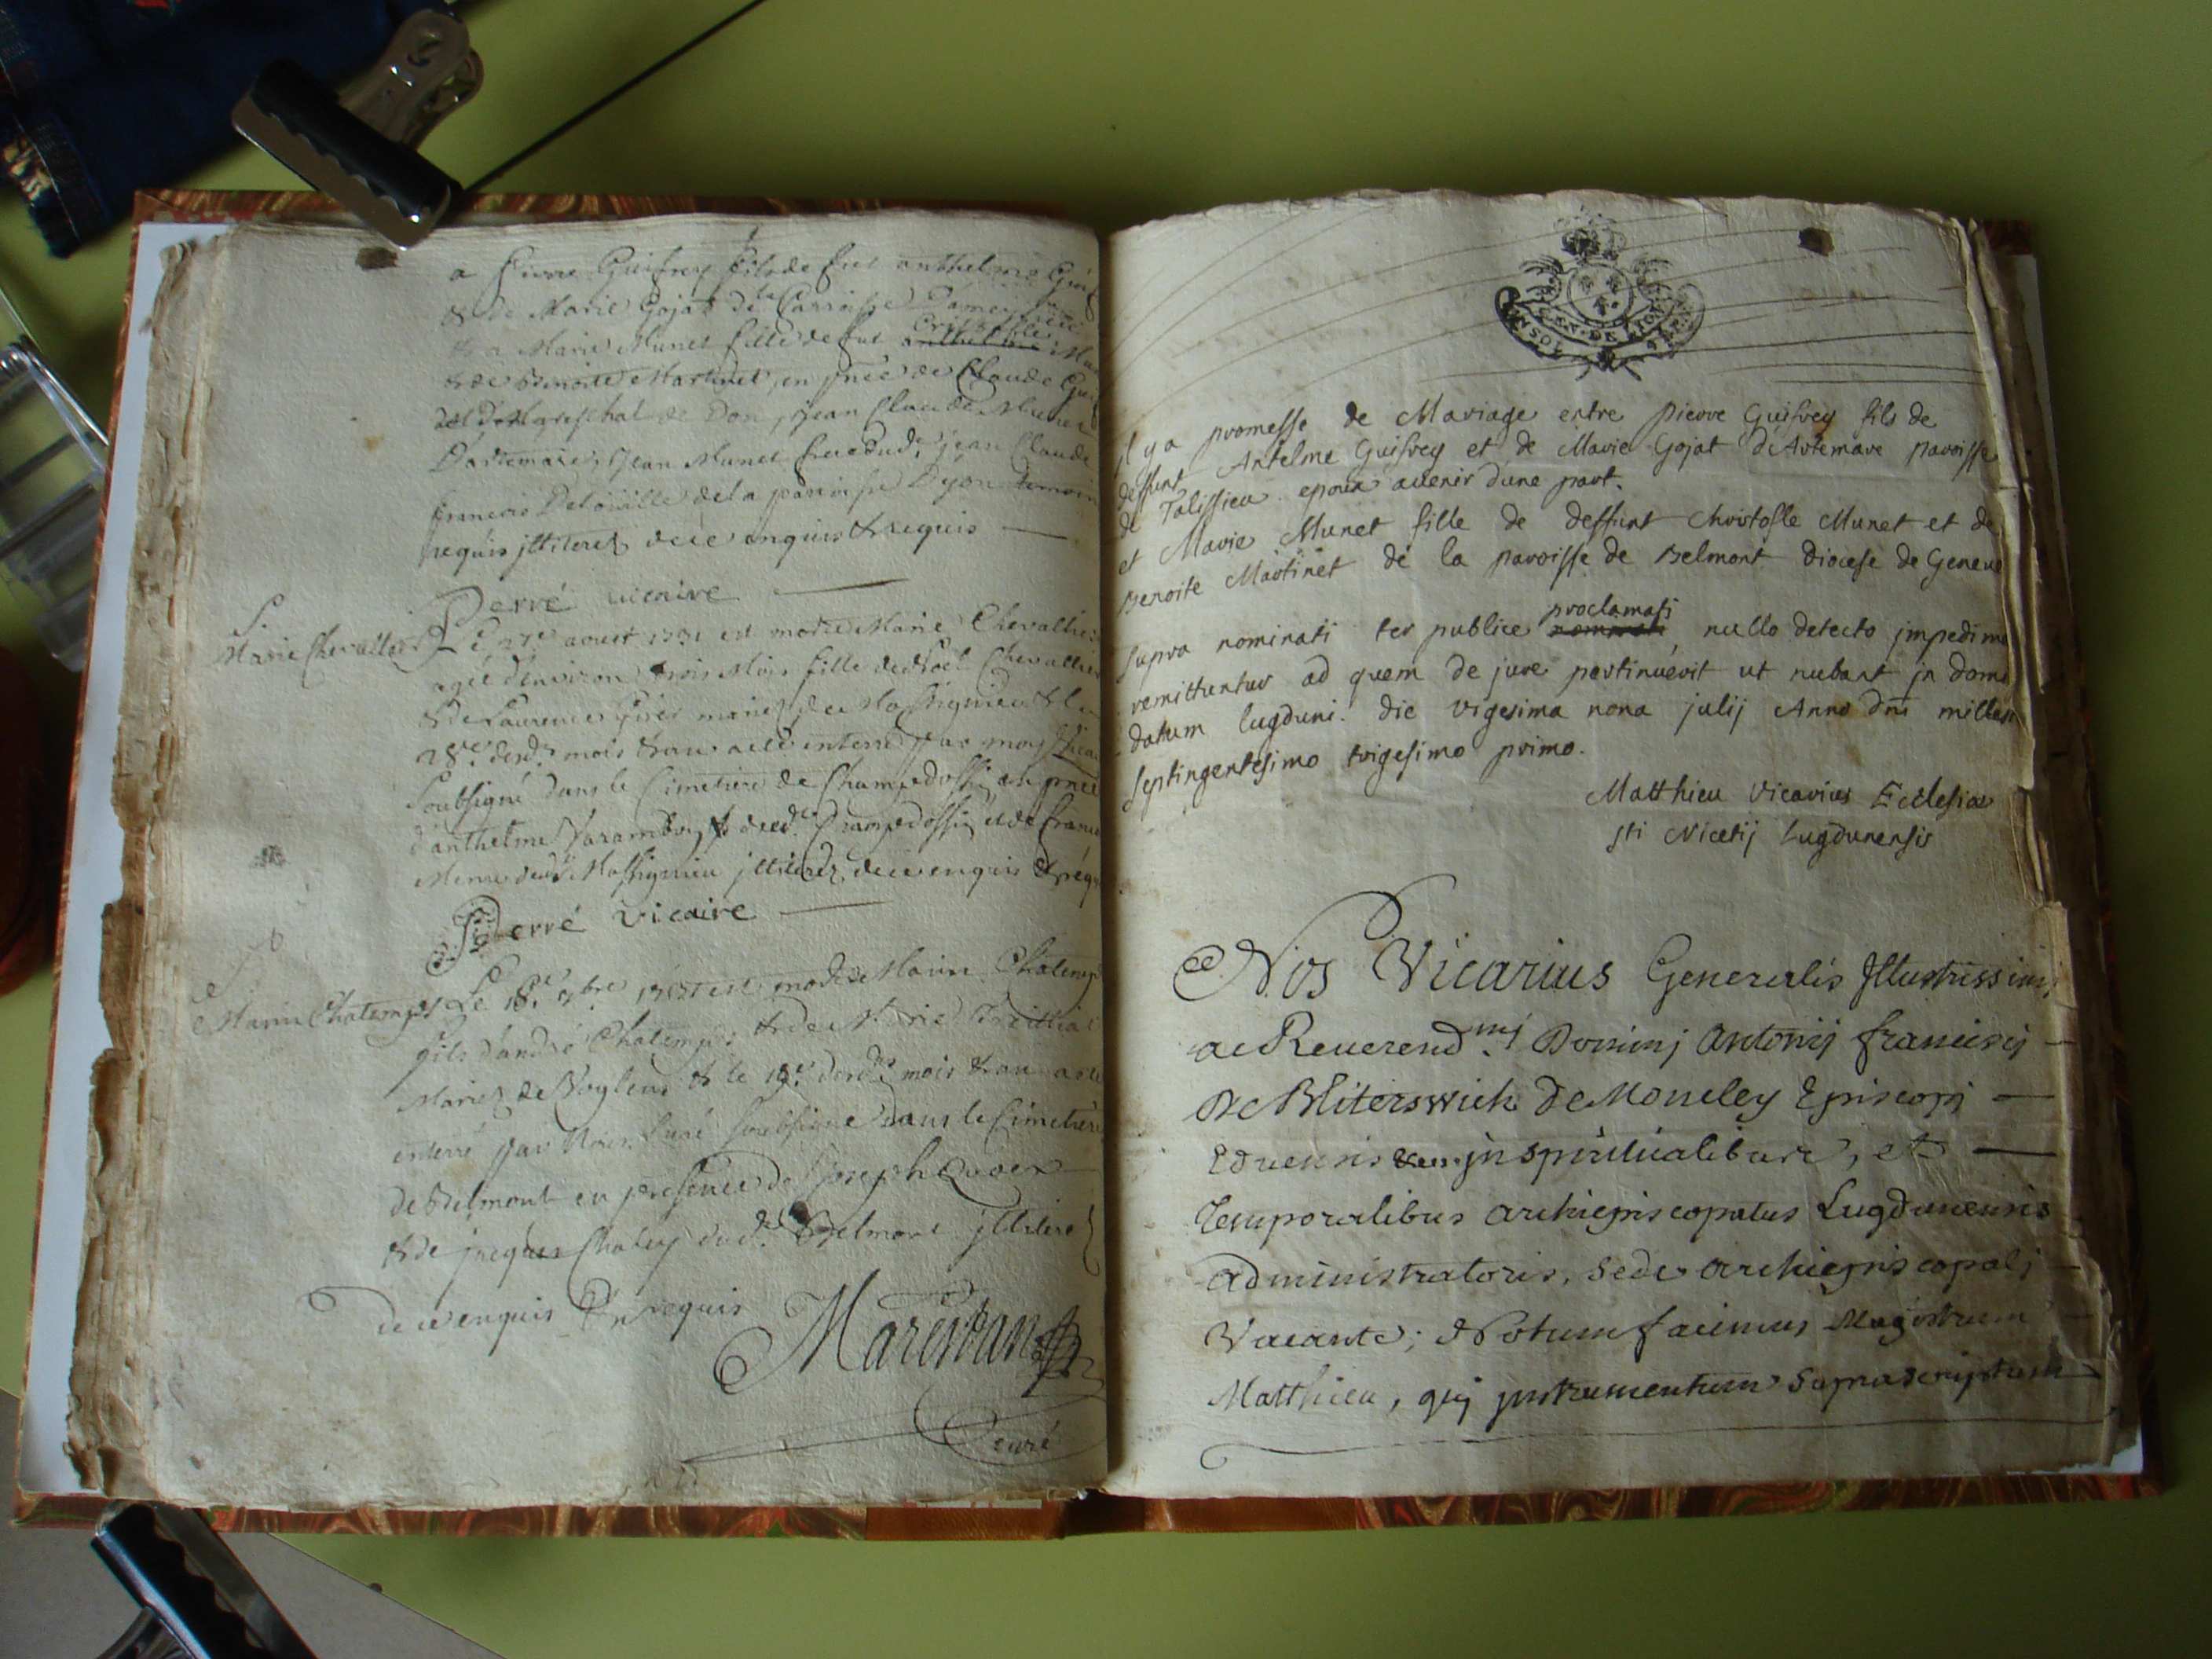 a Pierre Guifrey fils de fut anthelme
& de Marie Gojat de la Parroisse
& a Marie Munet fille de fut Cristophle anthelme
& de Benoite Martinet, en pnce de Claude
de Don, jean Claude Munet
Dartemare, jean Munet frere dud. jean Claude
francois de la paroisse Dyon
requis illiterez de ce enquis & requis
Derré vicaire
Marie Chevallier
Le 27e aoust 1731 est morte Marie Chevallier
agée denviron trois Mois fille de Chevallier
& de Laurence mariez de Massignieu & le
28e dud. mois & an a eté enterré par moy
soubsigné dans le Cimetiere de Champdossin en pnce
d'anthelme Varambon de Champdossin et de
dud. Massignieu illiterez de ce enquis &
Derré vicaire
Marin Chatemps
Le 18e 7bre 1731 est mort Marin Chatemps
fils d'andré Chatemps & de Marie
Mariez de Voglens & le 19e dud. mois & an a eté
enterré par Nous Curé soubsigné dans le Cimetiere
de Belmont en presence de Joseph
& de jacques Chaley dud. Belmont illiterez
de ce enquis & requis
Marestan
Curé
GEN. DE LION
il y a promesse de Mariage entre pierre Guifrey fils de
deffunt Antelme Guifrey et de Marie Gojat d'Artemare paroisse
de Talissieu epoux avenir d'une part.
et Marie Munet fille de deffunt christofle Munet et de
Benoite Martinet de la paroisse de Belmont diocese de Geneve
supra nominati ter publice nominati proclamati nullo detecto jmpedime
remittuntur ad quem de jure pertinuerit ut nubant jn domi
datum lugduni. die vigesima nona julij Anno Dni milles
septingentesimo trigesimo primo.
Matthieu vicarius Ecclesiae
sti Nicetij Lugdunensis
Nos Vicarius Generalis Illustrissimi
ac Reverendmi Dominj Antonij francisci
De Bliterswich De Moncley Episcopi
Eduensis in spiritualibus, et
Temporalibus archiepiscopatus Lugdunensis
administratoris, sede archiepiscopali
Vacante; Notum facimus Magistrum
Matthieu, qui jnstrumentum suprascriptum